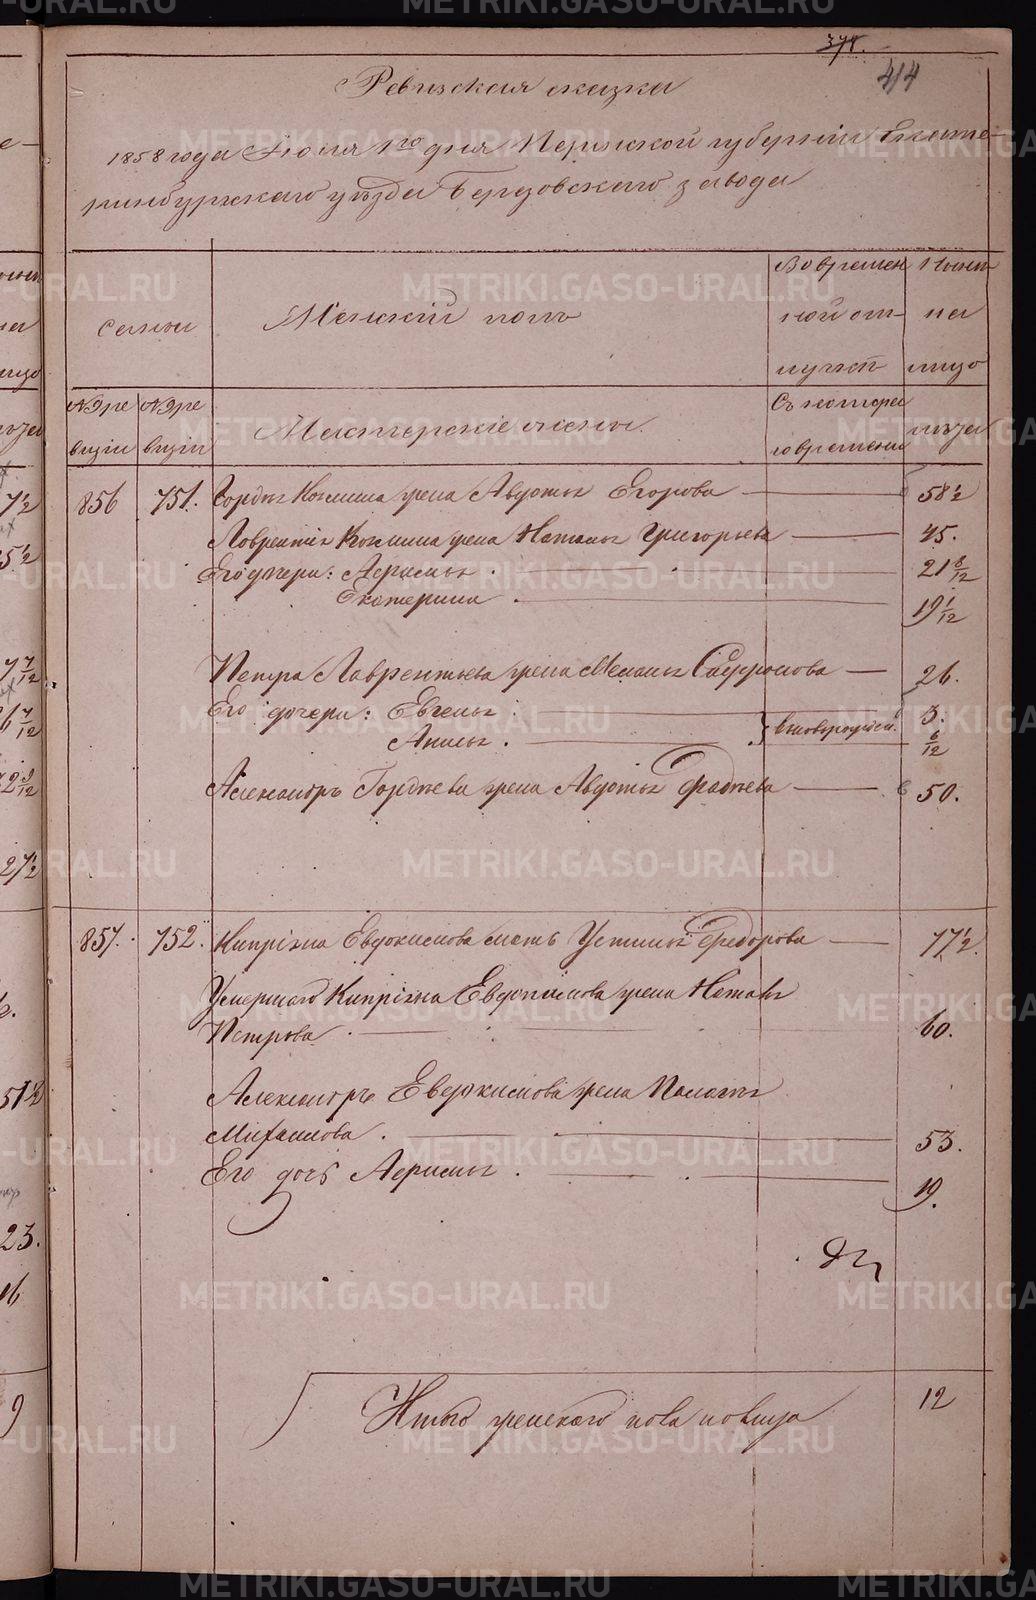 374.
414
Ревизская сказка
1858 года Июля 1го дня Пермской губернии Екате-
ринбургскаго уѣзда Березовскаго завода
Семьи
Женскій полъ
Во времен
ной от-
лучкѣ
Нынѣ
на
лицо
№ Эре
визіи
№ Эре
визіи
Мастерскіе жены
Съ котора
го времени
лѣта
856 751. Гордѣя Козмина жена Авдотья Егорова 58½
Лаврентія Козмина жена Наталья Григорьева 45.
Его дочери: Аграфена 21 8/12
Екатерина 19 1/12
Петра Лаврентьева жена Меланья Сафронова 26.
Его дочери: Евгенья 3.
Анисья 6/12
вновьрожден.
Александръ Гордѣева жена Авдотья Фадѣева 50.
857. 752. Кипріяна Евдокимова мать Устинья Федорова 77½
Умершаго Кипріяна Евдокимова жена Наталья
Петрова 60.
Александръ Евдокимова жена Палагѣя
Михайлова 53.
Его дочь 19.
Итого женскаго пола на лицо 12
METRIKI.GASO-URAL.RU